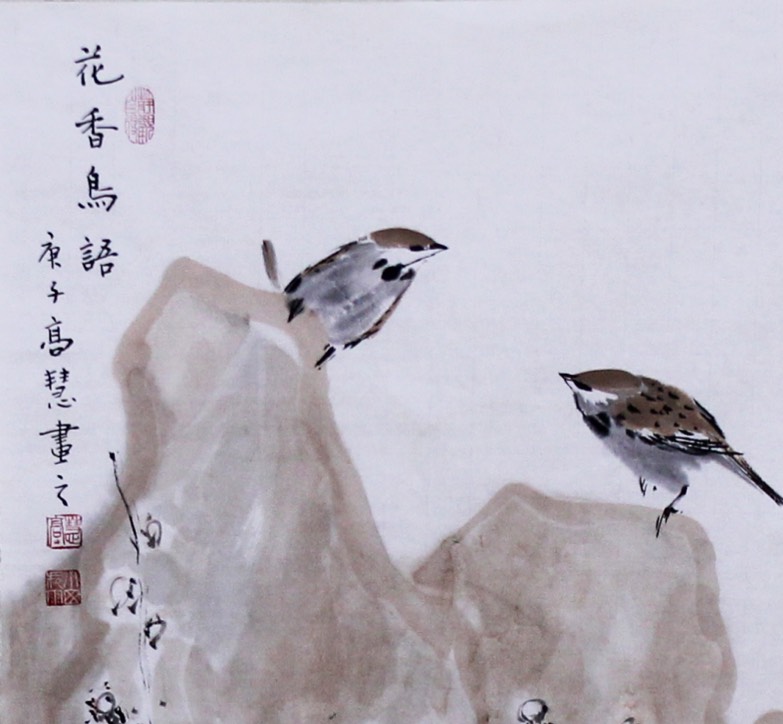 花香鳥語
庚子高慧畫之